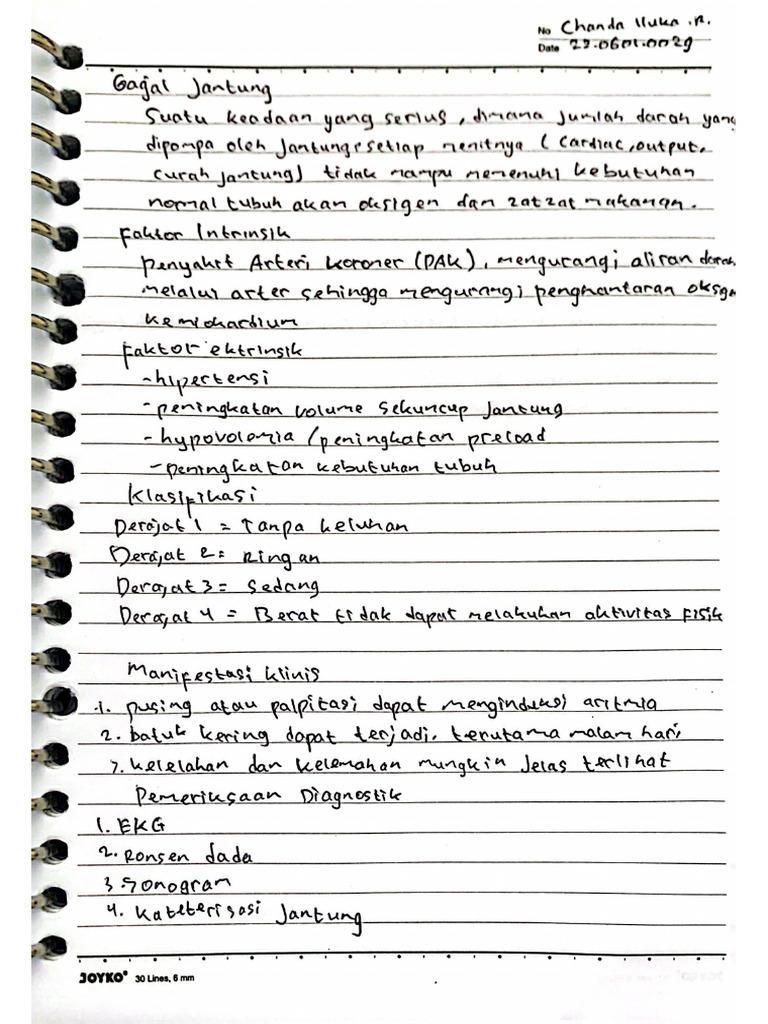 No Chanda Iluka .R.
Date 22.0601.0029
Gagal Jantung
Suatu keadaan yang serius, dimana jumlah darah yang
dipompa oleh jantung setiap menitnya (Cardiac, output,
curah jantung) tidak mampu memenuhi kebutuhan
normal tubuh akan oksigen dan zat zat makanan.
Faktor Intrinsik
penyakit Arteri Koroner (DAK), mengurangi aliran darah
melalui arter sehingga mengurangi penghantaran oksgn
kemiokardium
Faktor ektrinsik
-hipertensi
-peningkatan volume sekuncup Jantung
-hypovolomia /peningkatan preload
-peningkatan kebutuhan tubuh
Klasifikasi
Derajat 1 = Tanpa keluhan
Derajat 2 = Ringan
Derajat 3 = Sedang
Derajat 4 = Berat tidak dapat melakukan aktivitas Fisik
Manifestasi klinis
1. pusing atau palpitasi dapat menginduksi aritmia
2. batuk kering dapat terjadi, terutama malam hari
3. kelelahan dan kelemahan mungkin Jelas terlihat
Pemeriksaan Diagnostik
1. EKG
2. Ronsen dada
3 Sonogram
4. Kateterisasi Jantung
JOYKO 30 Lines, 6 mm